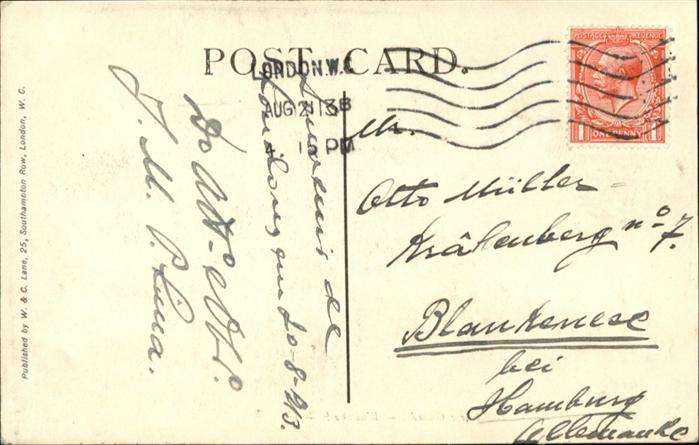 POST CARD.
LONDON. W.C
AUG 21 13
4 15 PM
POSTAGE REVENUE
1 ONE PENNY 1
de
20-8-913.
J. M. P. Luna.
Mr.
Otto Müller
Kräkenberg nº 7.
Blankenese
bei
Hamburg
Allemanha
Published by W. & C. Lane, 25, Southampton Row, London, W. C.